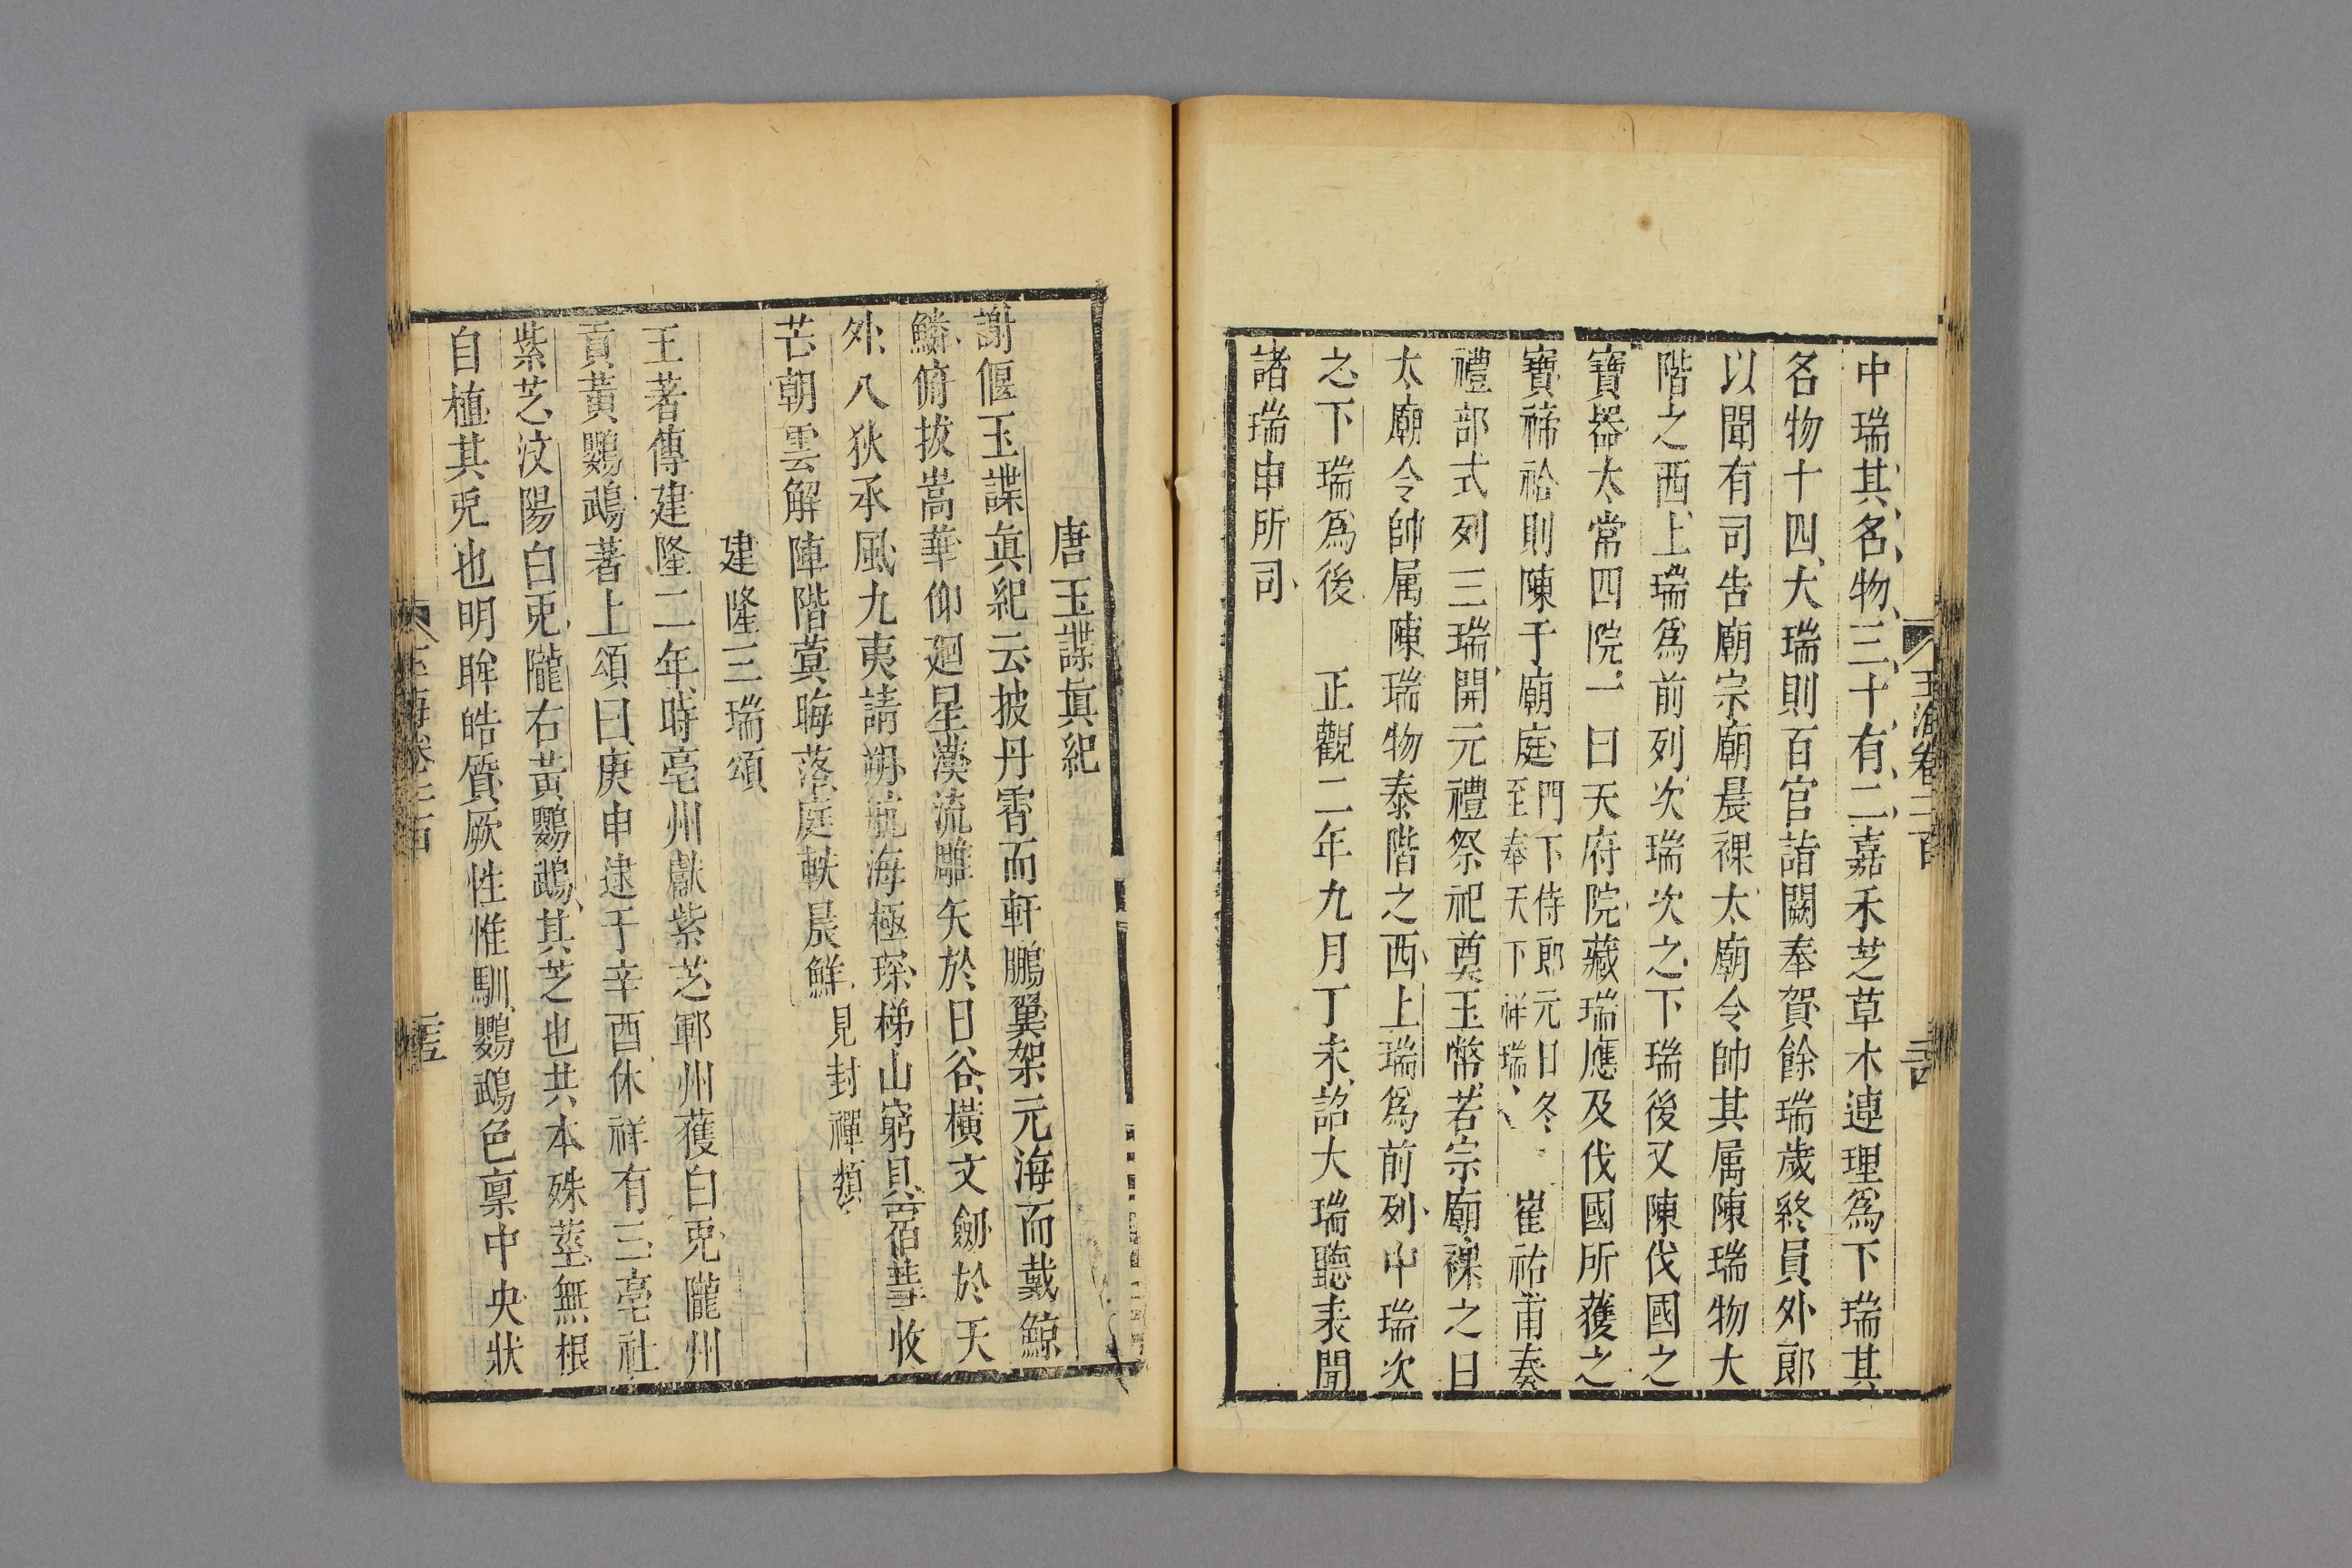 中瑞其名物三十有二嘉禾芝草木連理爲下瑞其
名物十四大瑞則百官詣闕奉賀餘瑞歲終員外郎
以聞有司告廟宗廟晨祼太廟令帥其属陳瑞物大
階之西上瑞爲前列次瑞次之下瑞後又陳伐國之
寶器太常四院一曰天府院藏瑞應及伐國所獲之
寶禘祫則陳于廟庭門下侍郎元日冬至奉天下祥瑞 崔祐甫奏
禮部式列三瑞開元禮祭祀奠玉幣若宗廟祼之日
太廟令帥属陳瑞物泰階之西上瑞爲前列中瑞次
之下瑞爲後 正觀二年九月丁未詔大瑞聽表聞
諸瑞申所司
唐玉諜眞紀
謝偃玉諜眞紀云披丹霄而軒鵬翼架元海而戴鯨
鱗俯拔嵩華仰廻星漢流雕矢於日谷橫文劒於天
外八狄承風九夷請朔航海極琛梯山窮貝宿彗收
芒朝雲解陣階蓂晦落庭莢晨鮮見封禪類
建隆三瑞頌
王著傳建隆二年時亳州獻紫芝鄆州獲白兎隴州
貢黃鸚鵡著上頌曰庚申逮于辛酉休祥有三亳社
紫芝汶陽白兎隴右黃鸚鵡其芝也共本殊莖無根
自植其兎也明眸皓質厥性惟馴鸚鵡色稟中央狀
玉海卷二百